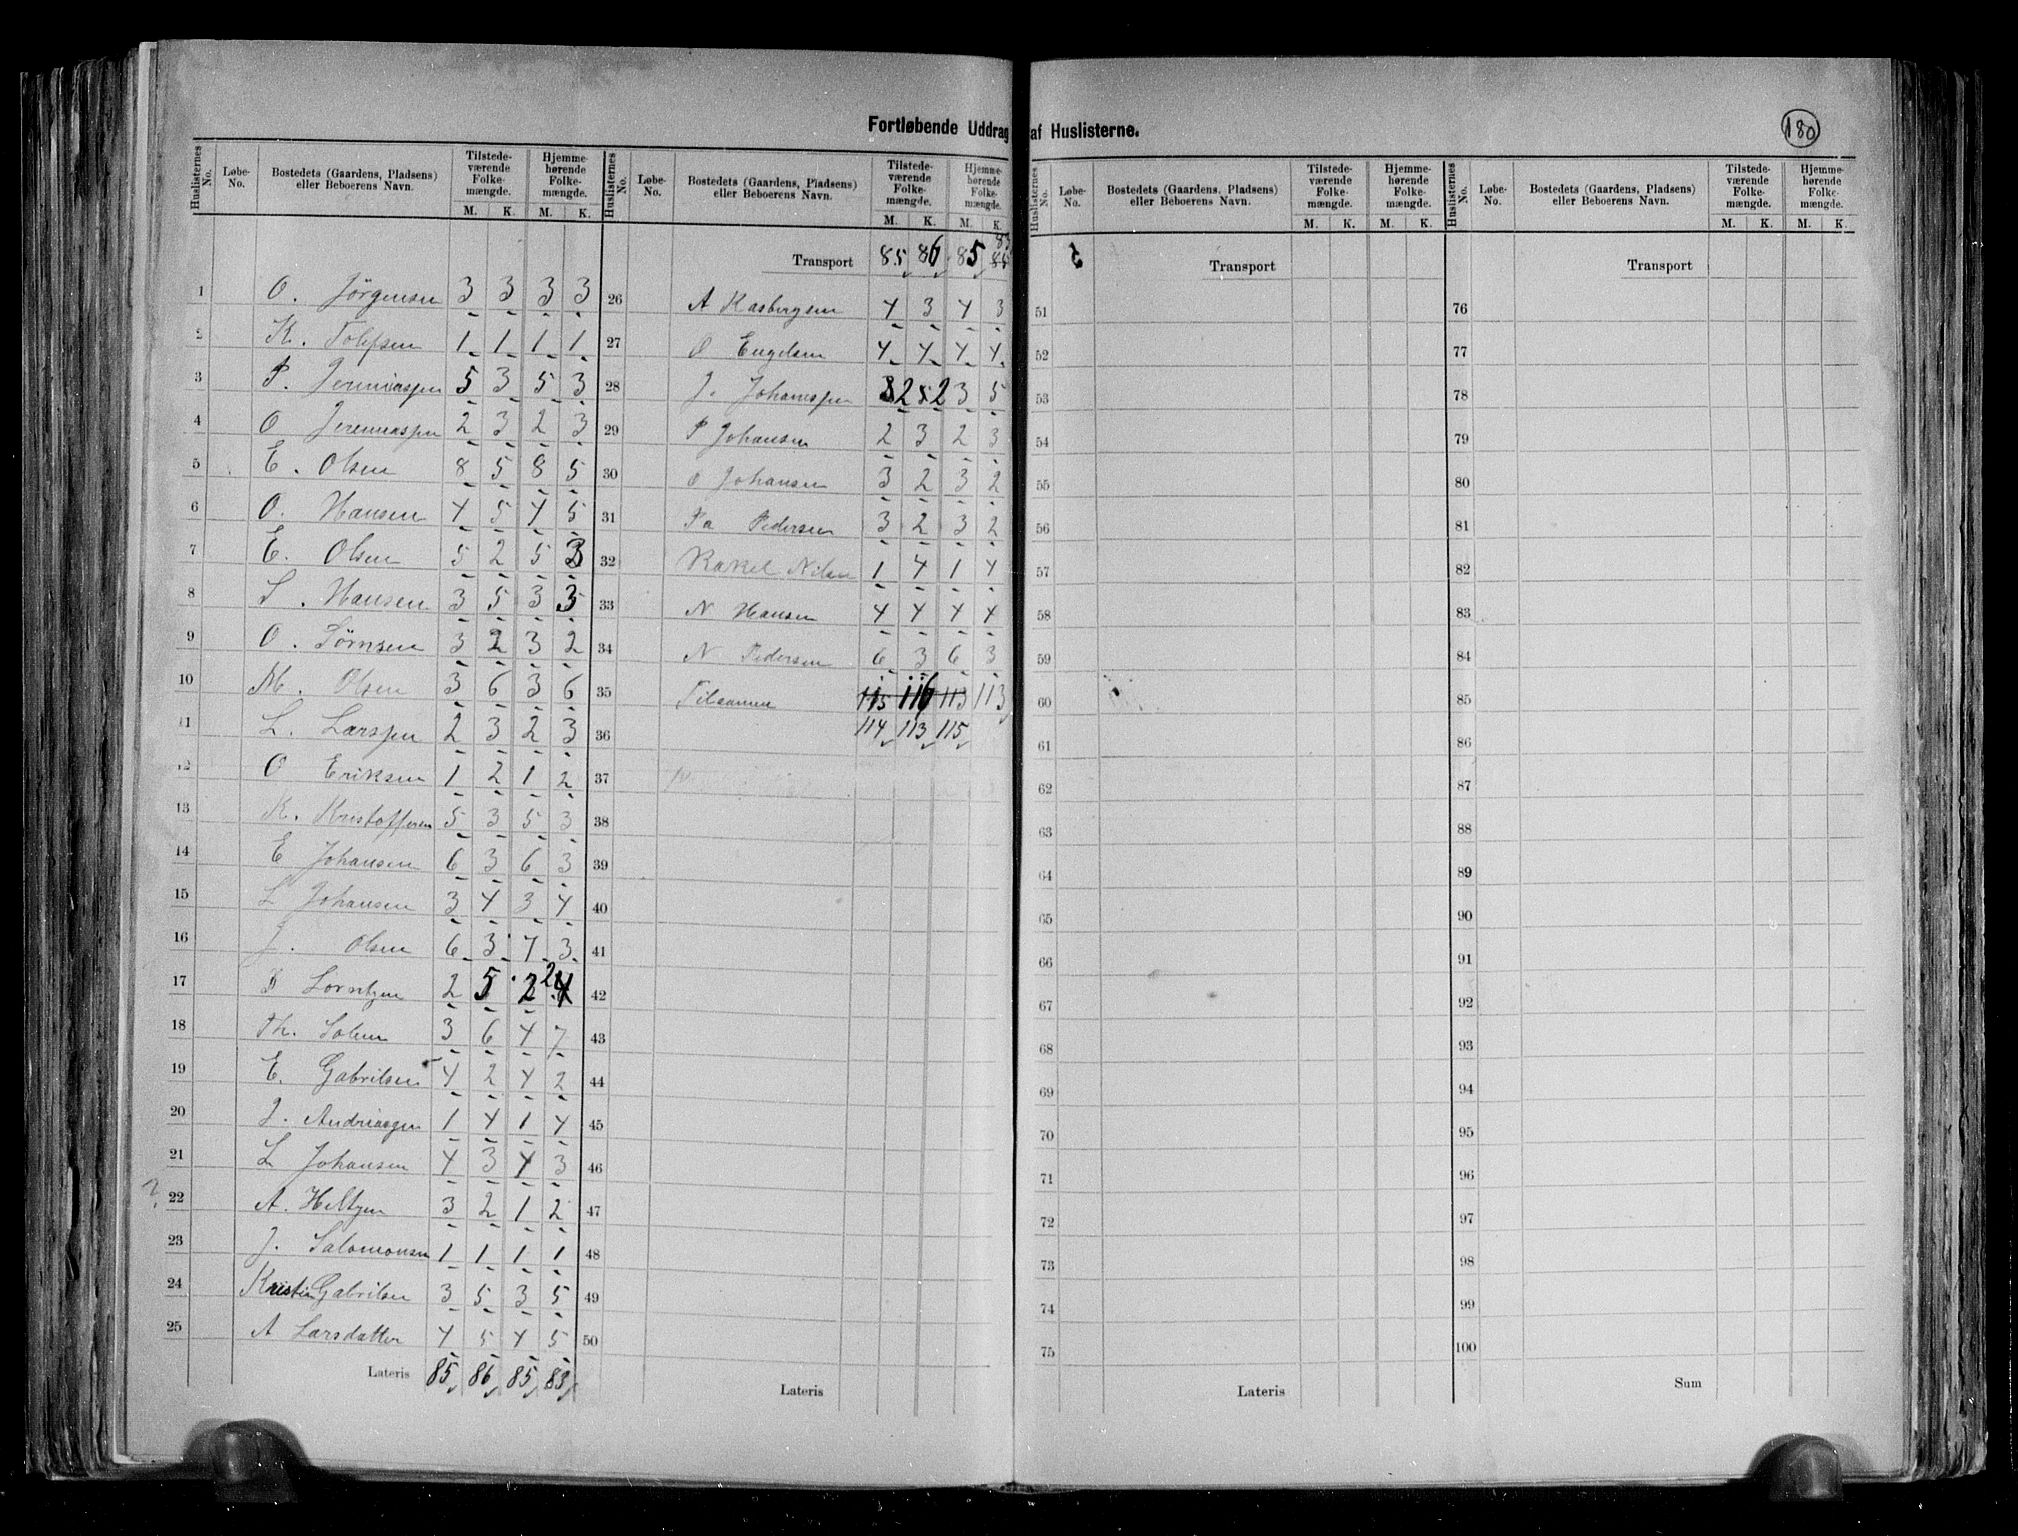 Fortløbende Uddrag af Huslisterne.
180
Huslisternes No. Løbe-No. Bostedets (Gaardens, Pladsens) eller Beboerens Navn. Tilstedeværende Folkemængde. M. K. Hjemmehørende Folkemængde. M. K.
1 O. Jørgensen 3 3 3 3
2 K. Tolefsen 1 1 1 1
3 P. Jeremiaspen 5 3 5 3
4 O Jeremiaspen 2 3 2 3
5 E. Olsen 8 5 8 5
6 O. Hansen 4 5 4 5
7 E. Olsen 5 2 5 3
8 S. Hansen 3 5 3 3
9 O. Sørnsen 3 2 3 2
10 M. Olsen 3 6 3 6
11 L. Larspen 2 3 2 3
12 O Eriksen 1 2 1 2
13 K. Kristoffersen 5 3 5 3
14 E Johansen 6 3 6 3
15 L Johansen 3 4 3 4
16 J. Olsen 6 3 7 3
17 Lorntzen 2 5 2 2
18 Th. Solem 3 6 4 7
19 E. Gabrilsen 4 2 4 2
20 J. Andriasgen 1 4 1 4
21 L Johansen 4 3 4 3
22 A. Heltzen 3 2 1 2
23 J. Salomonsen 1 1 1 1
24 Kristin Gabrilsen 3 5 3 5
25 A Larsdatter 4 5 4 5
Lateris 85 86 85 83
Huslisternes No. Løbe-No. Bostedets (Gaardens, Pladsens) eller Beboerens Navn. Tilstedeværende Folkemængde. M. K. Hjemmehørende Folkemængde. M. K.
Transport 85 86 85 83
26 A Kasbergsen 4 3 4 3
27 O Engelsen 4 4 4 4
28 J. Johanespen 2 2 3 5
29 P Johansen 2 3 2 3
30 O Johansen 3 2 3 2
31 Pa Pedersen 3 2 3 2
32 Rakel Nilsen 1 4 1 4
33 N Hansen 4 4 4 4
34 N Pedersen 6 3 6 3
35 Tilsamen 115 116 113 113
36 114 113 115
37
38
39
40
41
42
43
44
45
46
47
48
49
50
Lateris
Huslisternes No. Løbe-No. Bostedets (Gaardens, Pladsens) eller Beboerens Navn. Tilstedeværende Folkemængde. M. K. Hjemmehørende Folkemængde. M. K.
Transport
51
52
53
54
55
56
57
58
59
60
61
62
63
64
65
66
67
68
69
70
71
72
73
74
75
Lateris
Huslisternes No. Løbe-No. Bostedets (Gaardens, Pladsens) eller Beboerens Navn. Tilstedeværende Folkemængde. M. K. Hjemmehørende Folkemængde. M. K.
Transport
76
77
78
79
80
81
82
83
84
85
86
87
88
89
90
91
92
93
94
95
96
97
98
99
100
Sum